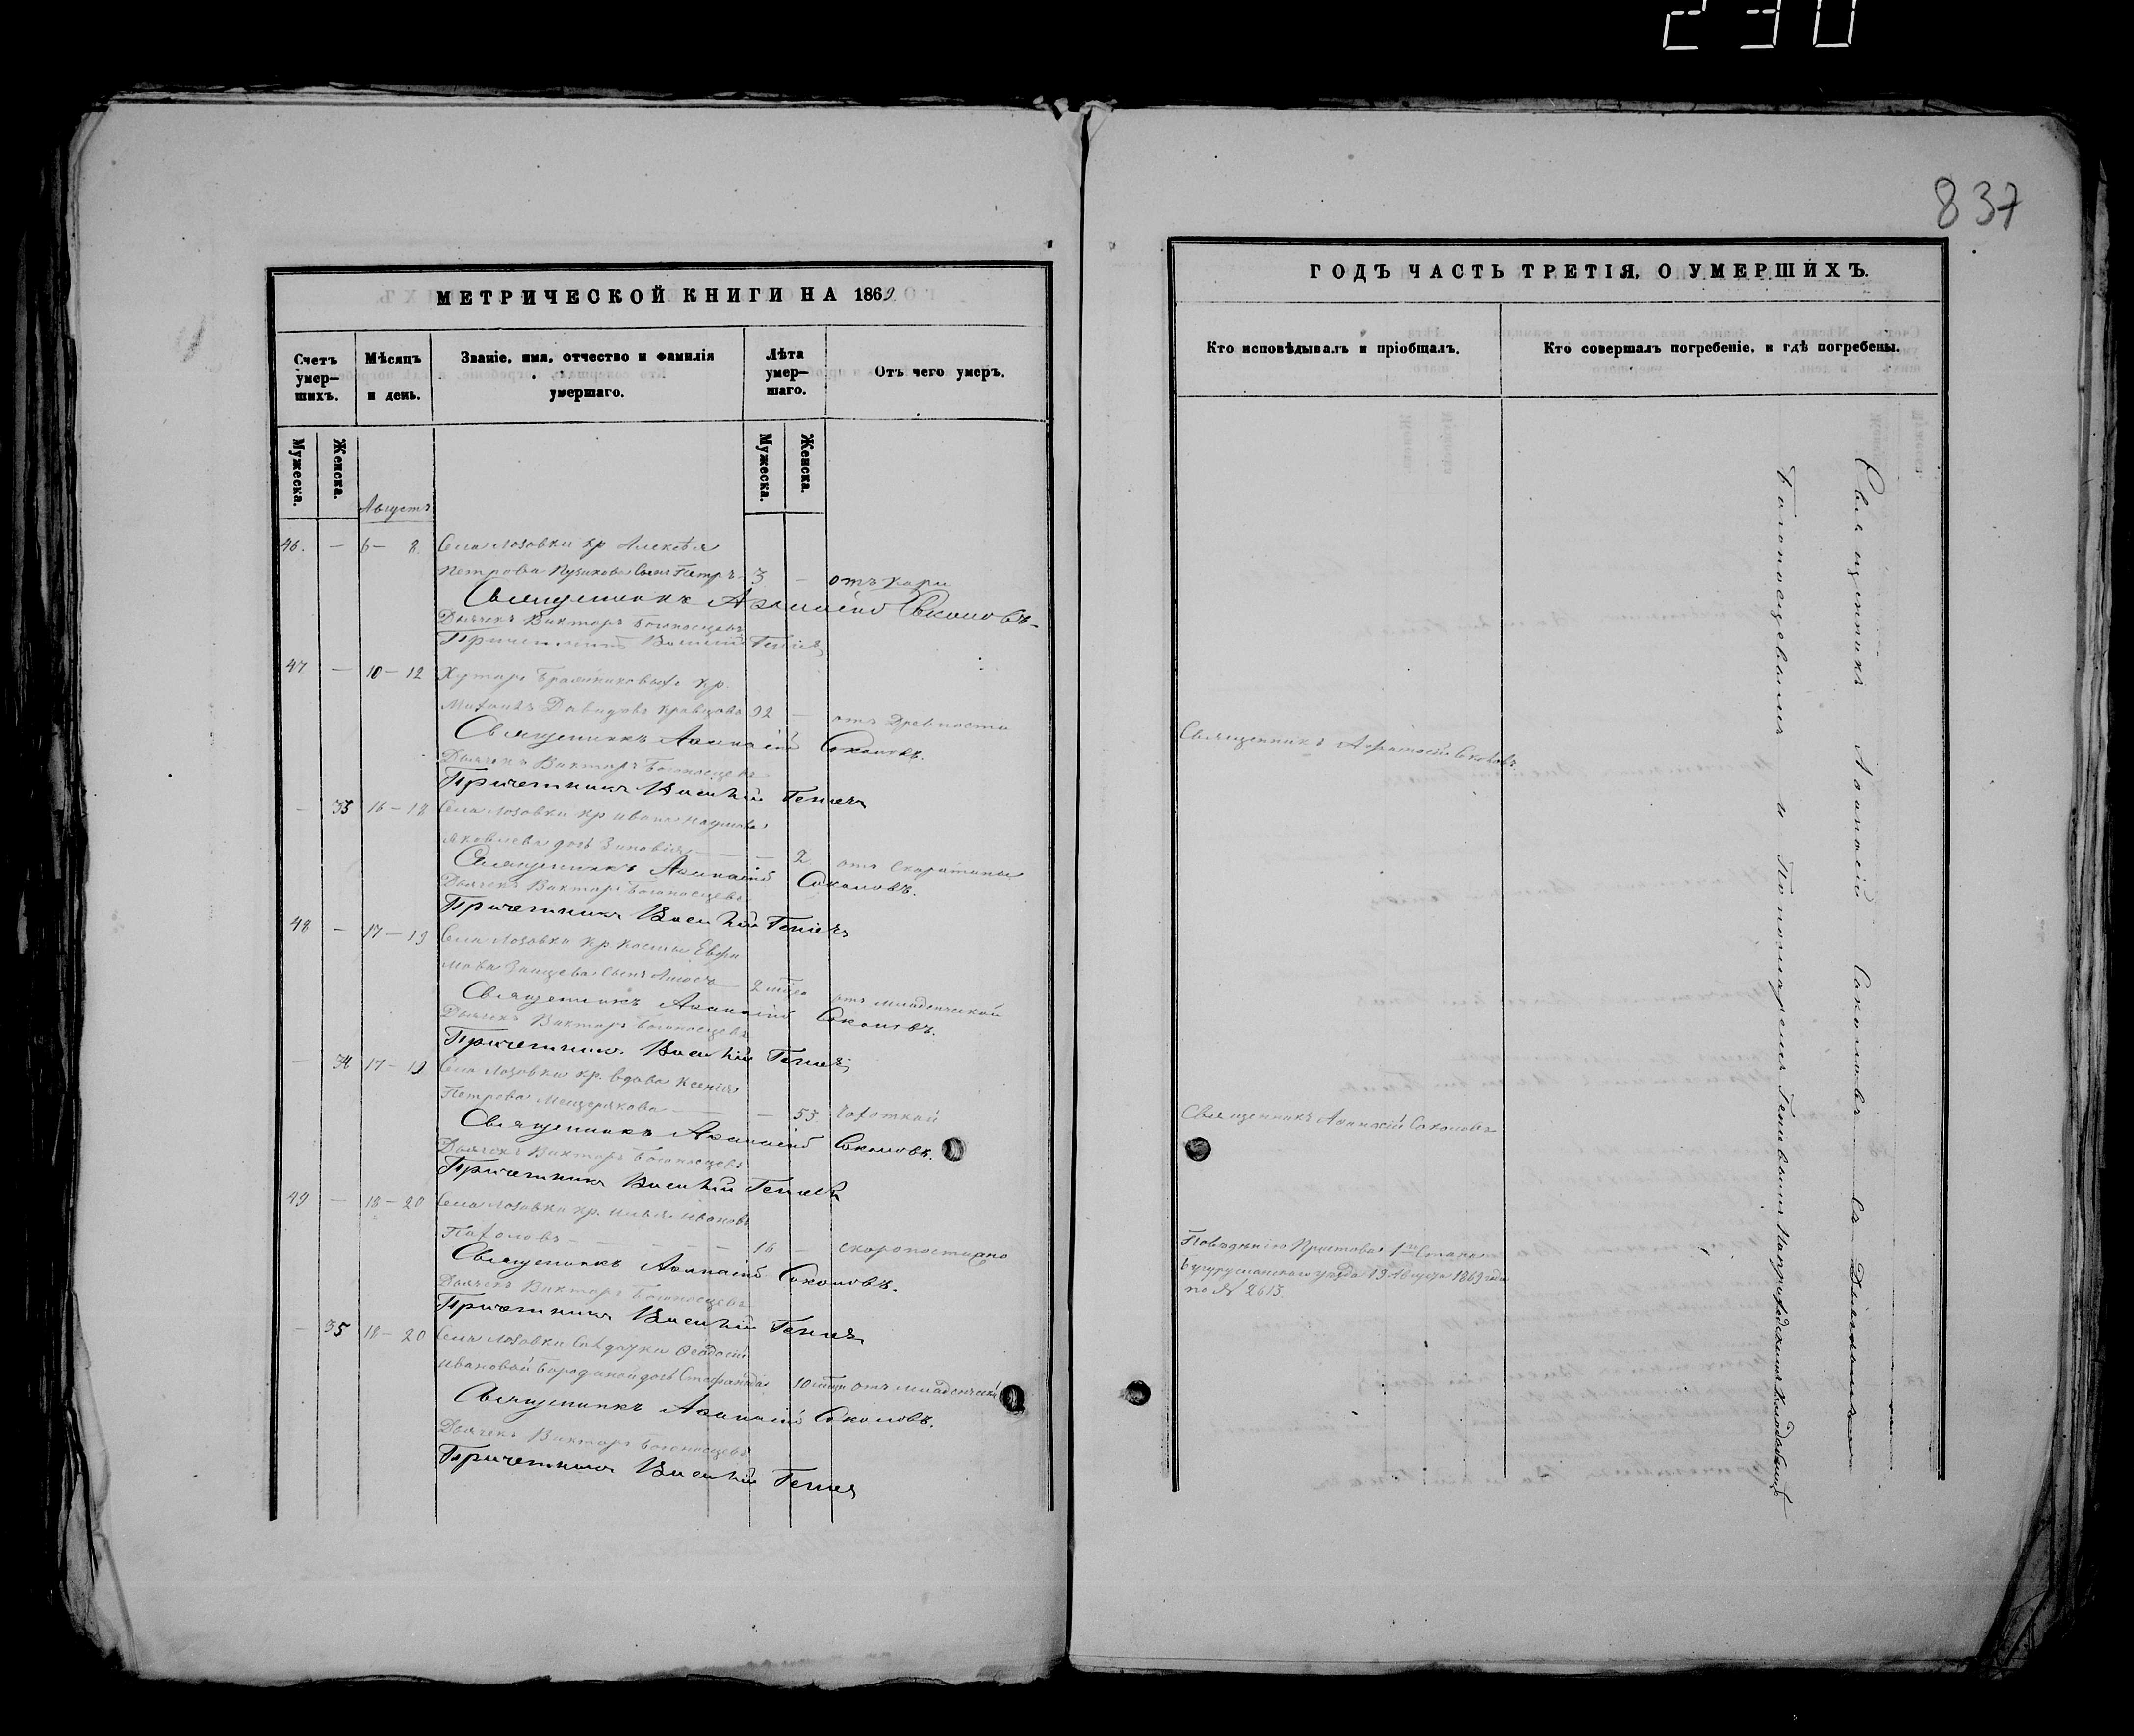 230
837
МЕТРИЧЕСКОЙ КНИГИ НА 1869
Счетъ умер—шихъ.
Мѣсяцъ и день.
Званіе, имя, отчество и фамилія умершаго.
Лѣта умер—шаго.
Отъ чего умеръ.
Мужеска.
Женска.
Мужеска.
Женска.
Августъ
46. — 6 — 8. Села Лозовки кр Алексѣя
Петрова Пузикова Сынъ Петръ — 3 — отъ кори
Священникъ Аѳанасій Соколовъ
Дьячекъ Викторъ Богоносцевъ
Причетникъ Василій
47 — 10 — 12 Хуторъ кр.
Давидовъ Кравцовъ 92 — отъ Древности
Священникъ Аѳанасій Соколовъ.
Дьячекъ Викторъ Богоносцевъ
Причетникъ Василій
— 33 16 — 18 Села Лозовки кр Ивана Наумова
Яковлева дочь Зиновія — — 2 отъ Скарлатины
Священникъ Аѳанасій Соколовъ.
Дьячекъ Викторъ Богоносцевъ
Причетникъ Василій
48 — 17 — 19 Села Лозовки кр. Космы Евфи
мова Зайцева Сынъ 2 отъ младенческой
Священникъ Аѳанасій Соколовъ.
Дьячекъ Викторъ Богоносцевъ
Причетникъ Василій
— 34 17 — 19 Села Лозовки кр. вдова Ксенія
Петрова Мещерякова — — 53 Чахоткой
Священникъ Аѳанасій Соколовъ.
Дьячекъ Викторъ Богоносцевъ
Причетникъ Василій
49 — 18 — 20 Села Лозовки кр. Илья Ивановъ
Пахомовъ — 16 — скоропостижно
Священникъ Аѳанасій Соколовъ.
Дьячекъ Викторъ Богоносцевъ
Причетникъ Василій
— 35 18 — 20 Села Лозовки Солдатки Ѳеодосіи
Ивановой Бородиной дочь 10 отъ младенческой
Священникъ Аѳанасій Соколовъ.
Дьячекъ Викторъ Богоносцевъ
Причетникъ Василій
ГОДЪ ЧАСТЬ ТРЕТІЯ, О УМЕРШИХЪ.
Кто исповѣдывалъ и пріобщалъ.
Кто совершалъ погребеніе, и гдѣ погребены.
Священникъ Аѳанасій Соколовъ
Священникъ Аѳанасій Соколовъ
Пристава 1го Стана
Бугурусланскаго уѣзда 19 Августа 1869 года
по № 2613
Священникъ Аѳанасій Соколовъ Съ Дьячкомъ
Богоносцевымъ и Пономаремъ на приходскомъ кладбищѣ